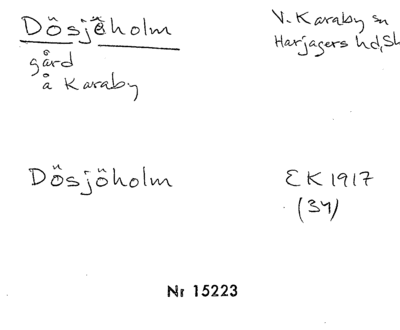 Dösjöholm
V. Karaby sn
gård
Harjagers hd, Sk
å Karaby
Dösjöholm
EK 1917
(34)
Nr 15223